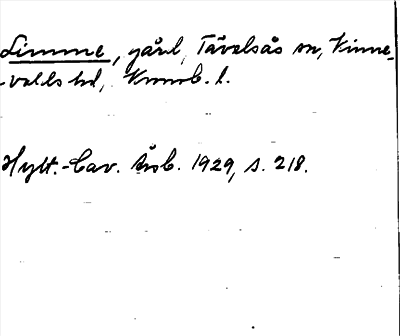 Limme, gård, Tävelsås sn, Kinne-
-valds hd, Kronob. l.
Hylt.-Cav. Årsb. 1929, s. 218.